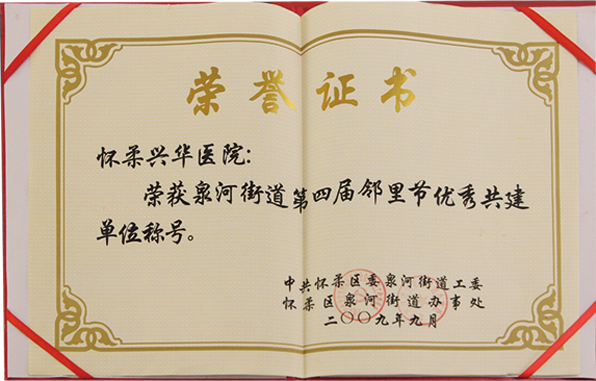 荣誉证书
怀柔兴华医院:
荣获泉河街道第四届邻里节优秀共建
单位称号。
中共怀柔区委泉河街道工委
怀柔区泉河街道办事处
二〇〇九年九月